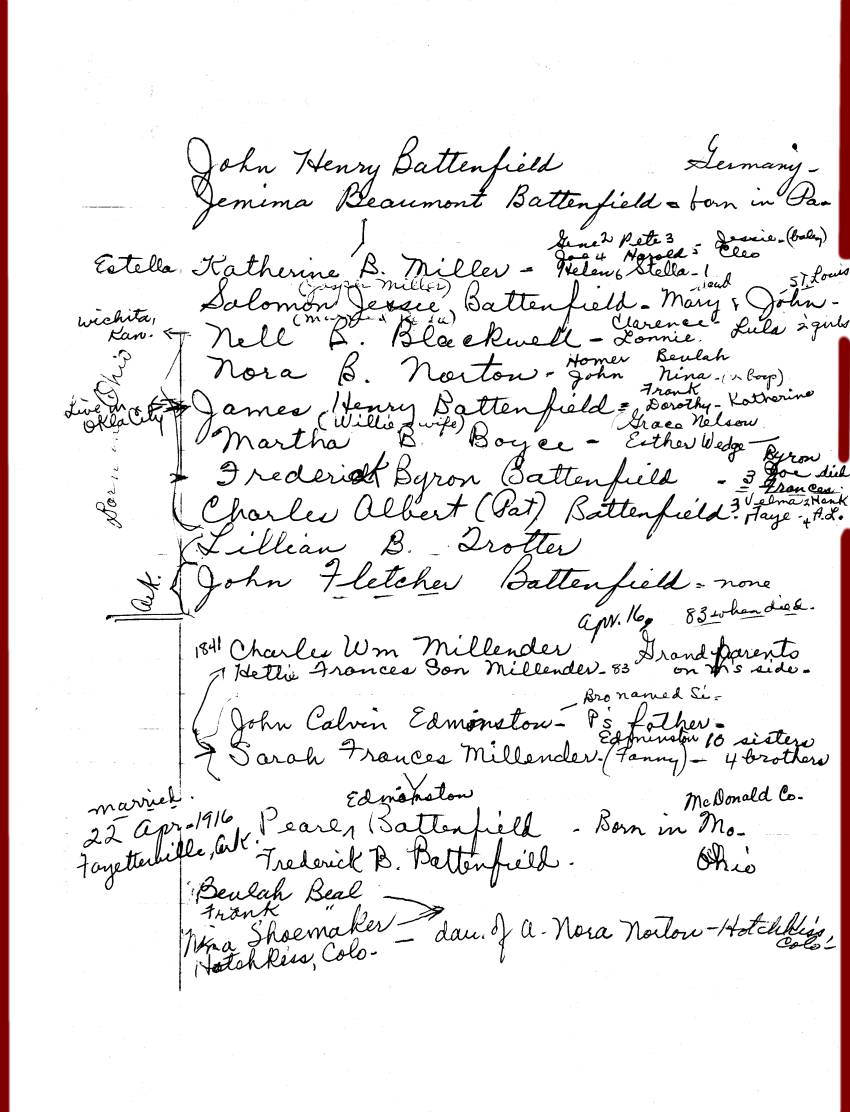 John Henry Battenfield Germany -
Jemima Beaumont Battenfield = born in Pa -
Gene 2 Pete 3 Jessie - (baby)
Joe 4 Harold 5 Cleo
Estella Katherine B. Miller = Helen 6 Stella - 1
(Jasper Miller) dead St. Louis
Salomon Jessie Battenfield - Mary & John -
Wichita, Kan. Nell B. Blackwell - Clarence - Lonnie. Lula 2 girls
Homer Beulah
Nora B. Norton - John Nina -
Born in Ohio
Live in Okla City
Frank
James Henry Battenfield = Dorothy - Katherine
(Willie - wife) Grace Nelson
Martha B. Boyce - Esther Wedge -
Byron
Frederick Byron Battenfield - 3 Joe died
Frances
Velma & Hank
Charles Albert (Pat) Battenfield. 3 Faye - + A.L.
Lillian B. Trotter
Ark. John Fletcher Battenfield = none
Apr. 16, 83 when died.
1841 Charles Wm Millender Grandparents
Hettie Frances Son Millender - 83 on M's side -
Bro named Si -
John Calvin Edmonston - P's father -
Edminston 10 sisters
Sarah Frances Millender - (Fanny) - 4 brothers
married. Edmonston McDonald Co -
22 Apr - 1916 Pearl Battenfield - Born in Mo -
Fayetteville, Ark. Frederick B. Battenfield. Ohio
Beulah Beal
Frank "
Nina Shoemaker - dau. of A. Nora Norton - Hotchkiss, Colo -
Hotchkiss, Colo -